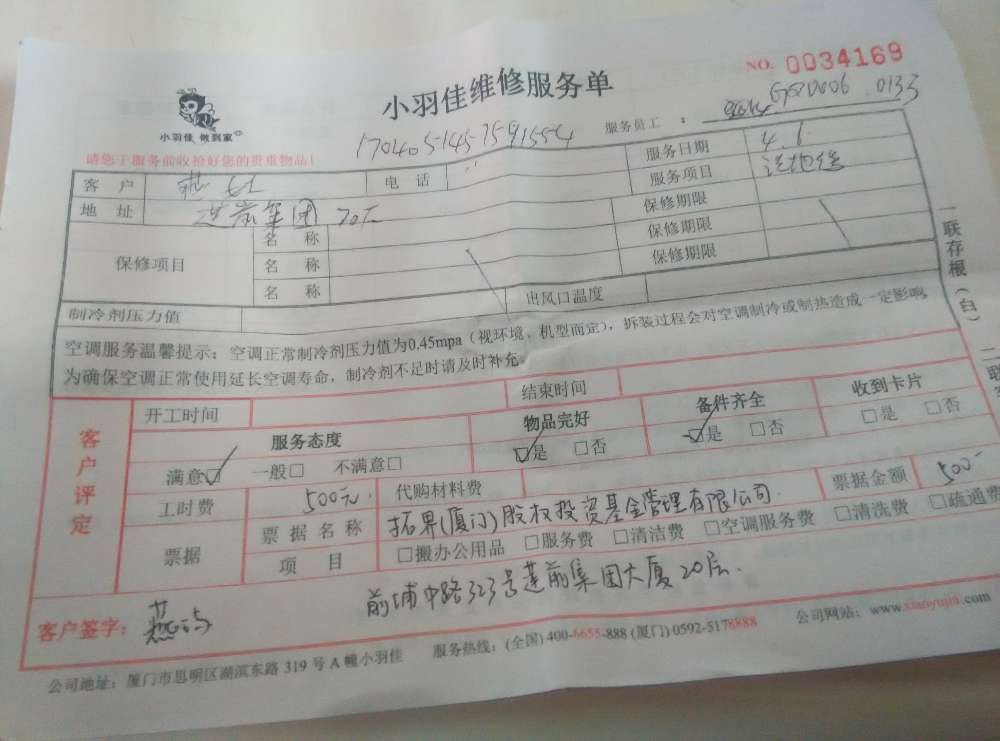 NO. 0034169
小羽佳维修服务单
小羽佳 做到家
请您于服务前收拾好您的贵重物品！
1704051457591554
服务员工 ： GP20006 0133
客 户 电 话 服务日期 4.6
地 址 莲前集团 20层 服务项目 洗地毯
保修项目 名 称 保修期限
名 称 保修期限
名 称 保修期限
制冷剂压力值 出风口温度
空调服务温馨提示：空调正常制冷剂压力值为0.45mpa（视环境，机型而定），拆装过程会对空调制冷或制热造成一定影响
为确保空调正常使用延长空调寿命，制冷剂不足时请及时补充。
一联存根（白）
二联
客户评定
开工时间 结束时间
服务态度 物品完好 备件齐全 收到卡片
满意☑ 一般□ 不满意□ ☑是 □否 ☑是 □否 □是 □否
工时费 500元. 代购材料费 票据金额 500-
票据 票据名称 拓界(厦门)股权投资基金管理有限公司.
项 目 □搬办公用品 □服务费 □清洁费 □空调服务费 □清洗费 □疏通费
前埔中路323号莲前集团大厦20层.
客户签字：
公司地址：厦门市思明区湖滨东路 319 号 A 幢小羽佳 服务热线：(全国) 400-6655-888 (厦门) 0592-5178888 公司网站：www.xiaoyujia.com